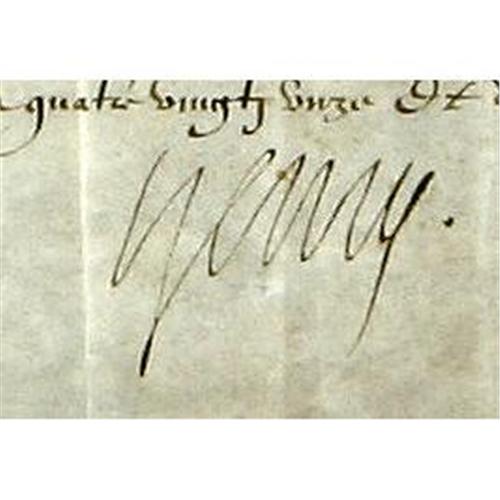 quatre vingtz unze et
Henry.